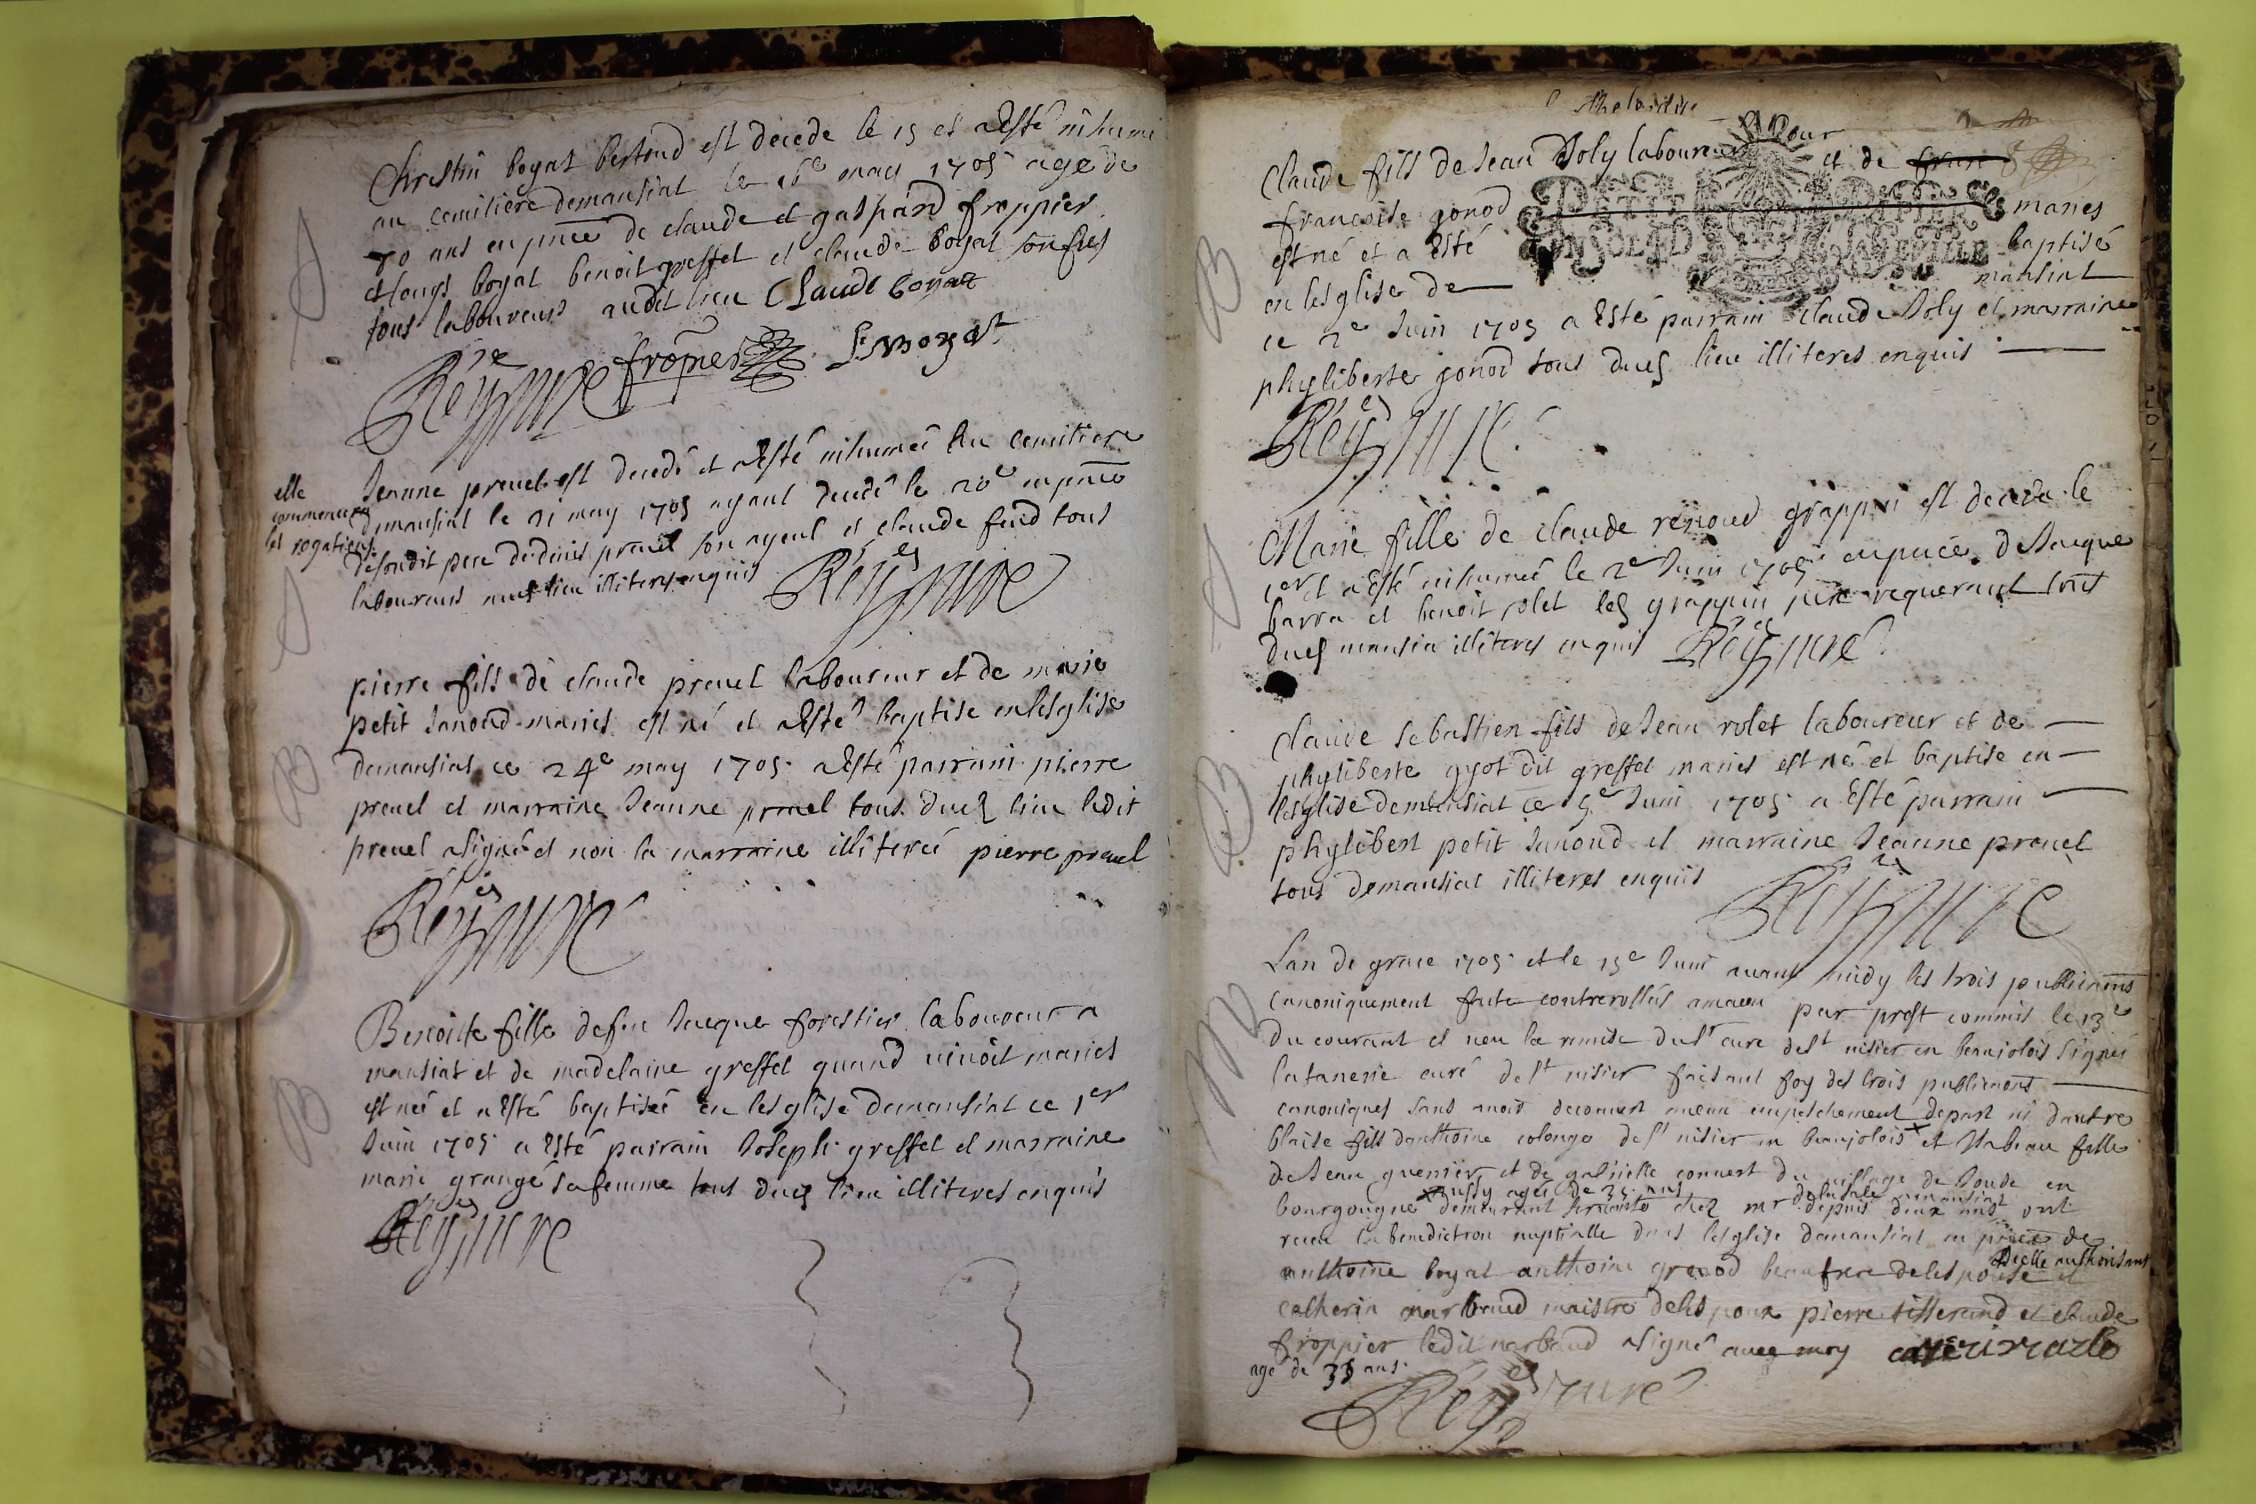 Chrestin boyat bertoud est decede le 15 et a Esté inhumé
au cemitiere demansiat le 16e may 1705 agé de
70 ans en pnce de claude et gaspard froppier
et louys boyat benoit greffet et claude boyat son fils
tous laboureurs audit lieu Claude boyat
Rey curé fropier L boyat
elle
commencea
les rogations
Jeanne preuel est decedé et a Esté inhumeé au cemitiere
demansiat le 21 may 1705 ayant decedé le 20e en pnce
dudit pere de denis preuel son ayeul et claude feud tous
laboureurs lieu illiteres enquis Rey curé
pierre fils de claude preuel laboureur et de marie
petit Janoud maries est né et a Esté baptise en lesglise
demansiat ce 24e may 1705 a Esté parrain pierre
preuel et marraine Jeanne preuel tous dud lieu ledit
preuel a signé et non la marraine illitereé pierre preuel
Rey curé
B
Benoite fille defeu Jacque forestier laboureur a
mansiat et de madelaine greffet quand vivoit maries
est neé et a Esté baptiseé en lesglise demansiat ce 1er
Juin 1705 a Esté parrain Joseph greffet et marraine
marie grangé sa femme tous dud lieu illiteres enquis
Rey curé
B
Claude fils de Jean Joly laboureur et de fran
francoise gonod maries
PETIT PAPIER
est né et a Esté baptisé
en lesglise de mansiat
ce 2e Juin 1705 a Esté parrain claude Joly et marraine
phyliberte gonod tous dud lieu illiteres enquis
Rey curé
Marie fille de claude renoud grappin est decede le
1er et a Esté inhumeé le 2e Juin 1705 en pnce de Jacque
barra et benoit rolet led grappin pere requerant tous
dud mansia illiteres enquis Rey curé
B
Claude sebastien fils de Jean rolet laboureur et de
phyliberte gyot dit greffet maries est né et baptise en
lesglise demansiat ce 5e Juin 1705 a Esté parrain
phylibert petit Janoud et marraine Jeanne preuel
tous demansiat illiteres enquis
Rey curé
M
Lan de grace 1705 et le 15e Juin avant midy les trois publications
canoniquement faite controrollés amacon par prost commis le 13e
du courant et veu la remise du Sr curé de St nisier en beaujolois signeé
curé de St nisier faisant foy des trois publications
canoniques sans avoir decouvert aucun empeschement depart ni dautre
blaise fils danthoine colonge de St nisier en beaujolois x et Isabeau fille
de Jean guerrier et de gabrielle convert du village de Joude en
x aussy ageé de 35 ans delasale amansiat
bourgougne demeurant servante chez mr depuis deux ans ont
receu la benediction nuptialle dans lesglise demansiat en pnce de
dicelle authorisant
anthoine boyat anthoine grenod beaufrere delespouse et
catherin marbaud maistre delespoux pierre tisserand et claude
froppier ledit marbaud a signé avec moy
agé de 35 ans
Rey curé